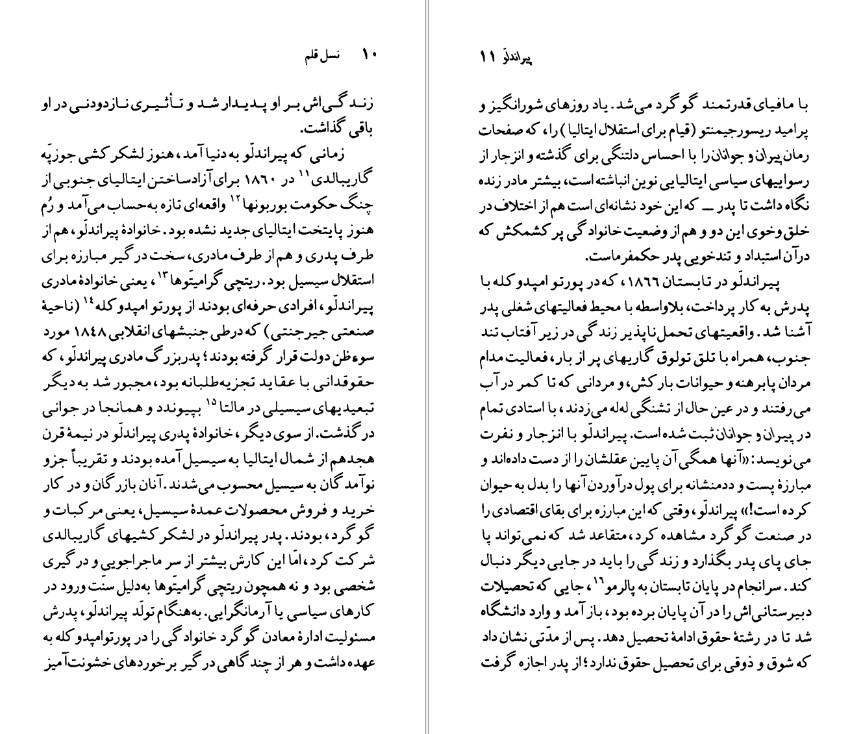 ۱۰ نسل قلم
زندگی‌اش بر او پدیدار شد و تأثیری نازدودنی در او
باقی گذاشت.
زمانی که پیراندلّو به دنیا آمد، هنوز لشکرکشی جوزپّه
گاریبالدی۱۱ در ۱۸۶۰ برای آزادساختن ایتالیای جنوبی از
چنگ حکومت بوربونها۱۲ واقعه‌ای تازه به‌حساب می‌آمد و رُم
هنوز پایتخت ایتالیای جدید نشده بود. خانوادهٔ پیراندلّو، هم از
طرف پدری و هم از طرف مادری، سخت درگیر مبارزه برای
استقلال سیسیل بود. ریتچی گرامیتّوها۱۳، یعنی خانوادهٔ مادری
پیراندلّو، افرادی حرفه‌ای بودند از پورتو امپدوکله۱۴ (ناحیهٔ
صنعتی جیرجنتی) که درطی جنبشهای انقلابی ۱۸۴۸ مورد
سوءظن دولت قرار گرفته بودند؛ پدربزرگ مادری پیراندلّو، که
حقوقدانی با عقاید تجزیه‌طلبانه بود، مجبور شد به دیگر
تبعیدیهای سیسیلی در مالتا۱۵ بپیوندد و همانجا در جوانی
درگذشت. از سوی دیگر، خانوادهٔ پدری پیراندلّو در نیمهٔ قرن
هجدهم از شمال ایتالیا به سیسیل آمده بودند و تقریباً جزو
نوآمدگان به سیسیل محسوب می‌شدند. آنان بازرگان و در کار
خرید و فروش محصولات عمدهٔ سیسیل، یعنی مرکبات و
گوگرد، بودند. پدر پیراندلّو در لشکرکشیهای گاریبالدی
شرکت کرد، امّا این کارش بیشتر از سر ماجراجویی و درگیری
شخصی بود و نه همچون ریتچی گرامیتّوها به‌دلیل سنّت ورود در
کارهای سیاسی یا آرمانگرایی. به‌هنگام تولّد پیراندلّو، پدرش
مسئولیت ادارهٔ معادن گوگرد خانوادگی را در پورتوامپدوکله به
عهده داشت و هر از چند گاهی درگیر برخوردهای خشونت‌آمیز
پیراندلّو ۱۱
با مافیای قدرتمند گوگرد می‌شد. یاد روزهای شورانگیز و
پرامید ریسورجیمنتو (قیام برای استقلال ایتالیا) را، که صفحات
رمان پیران و جوانان را با احساس دلتنگی برای گذشته و انزجار از
رسواییهای سیاسی ایتالیایی نوین انباشته است، بیشتر مادر زنده
نگاه داشت تا پدر — که این خود نشانه‌ای است هم از اختلاف در
خلق‌وخوی این دو و هم از وضعیت خانوادگی پرکشمکش که
درآن استبداد و تندخویی پدر حکمفرماست.
پیراندلّو در تابستان ۱۸۶۶، که در پورتو امپدوکله با
پدرش به کار پرداخت، بلاواسطه با محیط فعالیتهای شغلی پدر
آشنا شد. واقعیتهای تحمل‌ناپذیر زندگی در زیر آفتاب تند
جنوب، همراه با تلق تولوق گاریهای پر از بار، فعالیت مدام
مردان پابرهنه و حیوانات بارکش، و مردانی که تا کمر در آب
می‌رفتند و در عین حال از تشنگی له‌له می‌زدند، با استادی تمام
در پیران و جوانان ثبت شده است. پیراندلّو با انزجار و نفرت
می‌نویسد: «آنها همگی آن پایین عقلشان را از دست داده‌اند و
مبارزهٔ پست و ددمنشانه برای پول درآوردن آنها را بدل به حیوان
کرده است!» پیراندلّو، وقتی که این مبارزه برای بقای اقتصادی را
در صنعت گوگرد مشاهده کرد، متقاعد شد که نمی‌تواند پا
جای پای پدر بگذارد و زندگی را باید در جایی دیگر دنبال
کند. سرانجام در پایان تابستان به پالرمو۱۶، جایی که تحصیلات
دبیرستانی‌اش را در آن پایان برده بود، باز آمد و وارد دانشگاه
شد تا در رشتهٔ حقوق ادامهٔ تحصیل دهد. پس از مدّتی نشان داد
که شوق و ذوقی برای تحصیل حقوق ندارد؛ از پدر اجازه گرفت